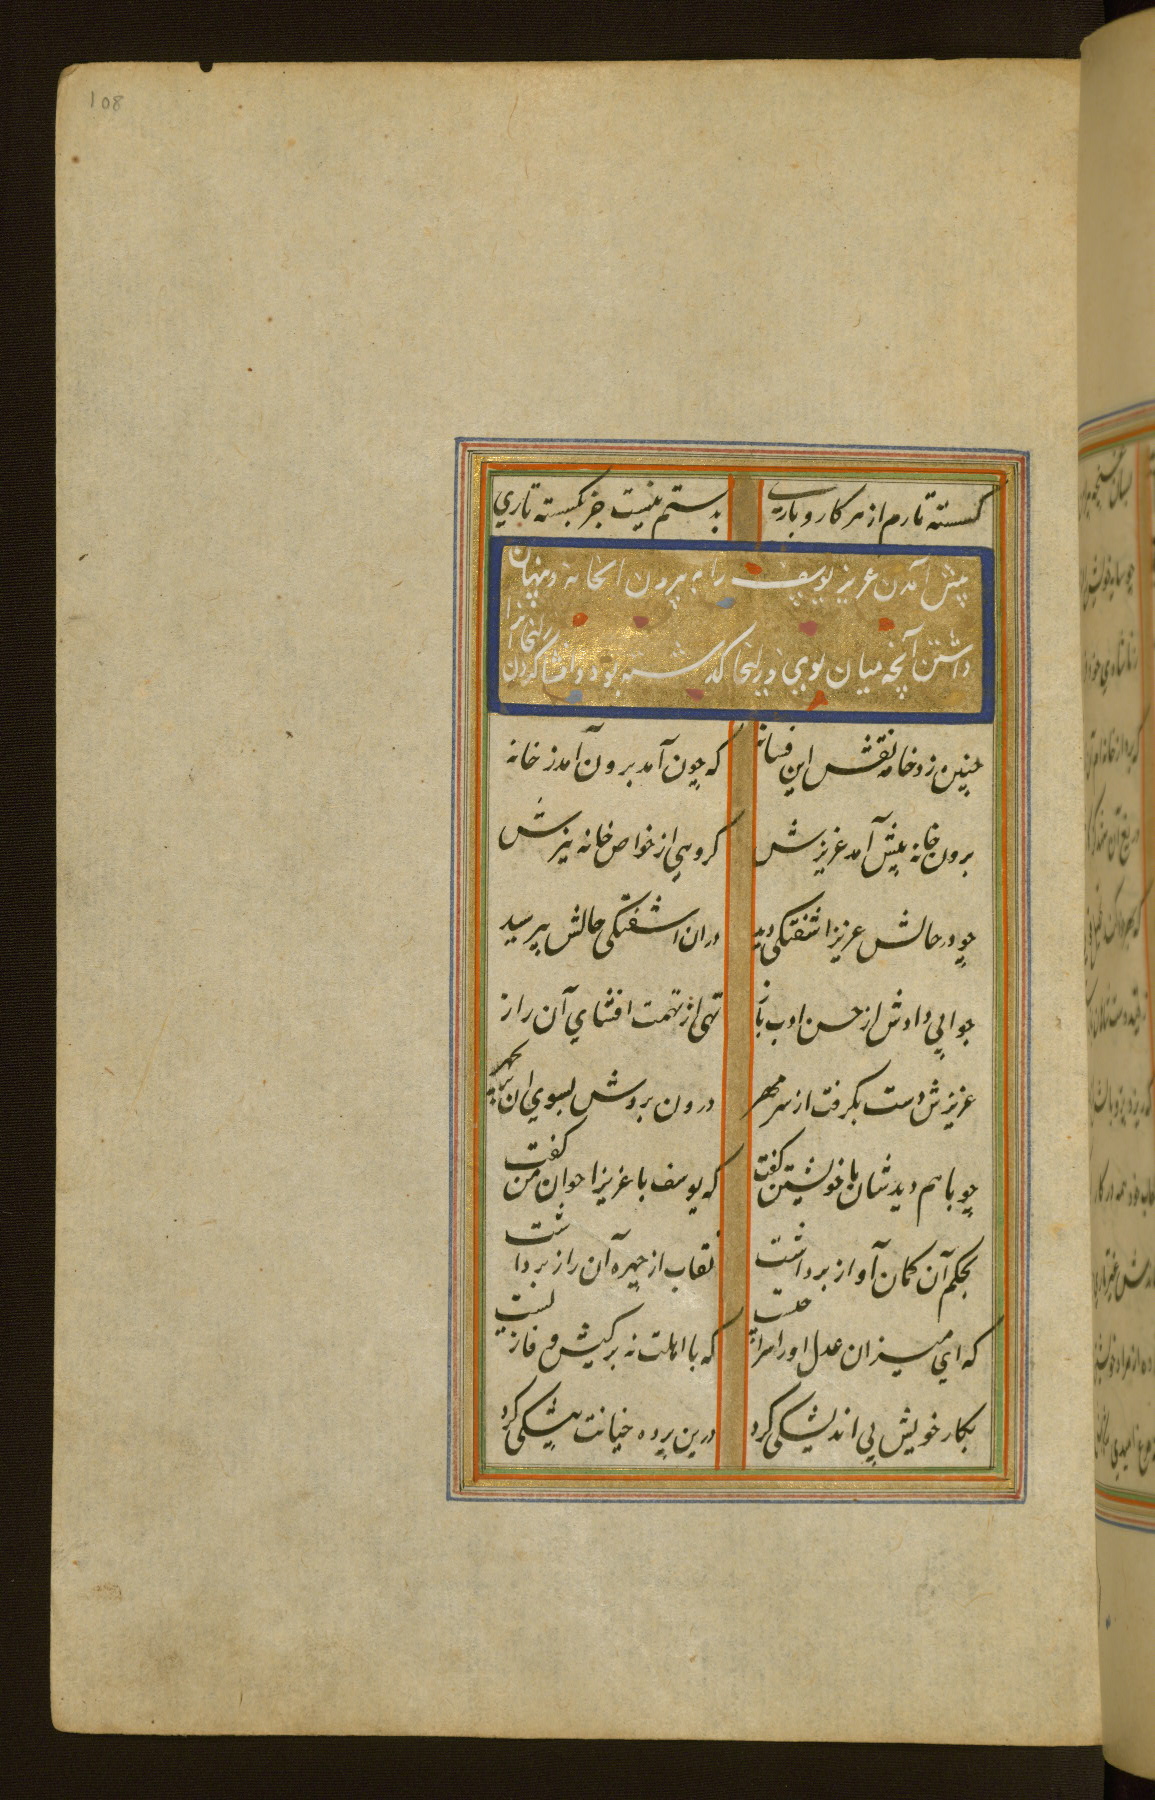 108
گسسته تارم از هر کار و باری
بدستم نیست جز بگسسته تاری
پیش آمدن عزیز یوسف را به بیرون آنخانه و پنهان
داشتن آنچه میان یوسف و زلیخا گذشته بود و افشا کردن
زلیخا آنرا
چنین زد خامه نقش این فسانه
که چون آمد برون آمد ز خانه
برون خانه پیش آمد عزیزش
گروهی از خواص خانه نیزش
چو در حالش عزیز اشفتگی دید
دران اشفتگی حالش بپرسید
جوابی دادش از حسن ادب باز
تهی از تهمت افشای آن راز
عزیزش دست بگرفت از سر مهر
درون بردش بسوی ان پریچهر
چو با هم دیدشان با خویشتن گفت
که یوسف با عزیز احوال من گفت
بحکم آن کمان آواز برداشت
نقاب از چهره آن راز برداشت
که ای میزان عدل اورا سزا چیست
که با اهلت نه بر کیش وفا زیست
بکار خویش بی اندیشگی کرد
درین پرده خیانت پیشگی کرد